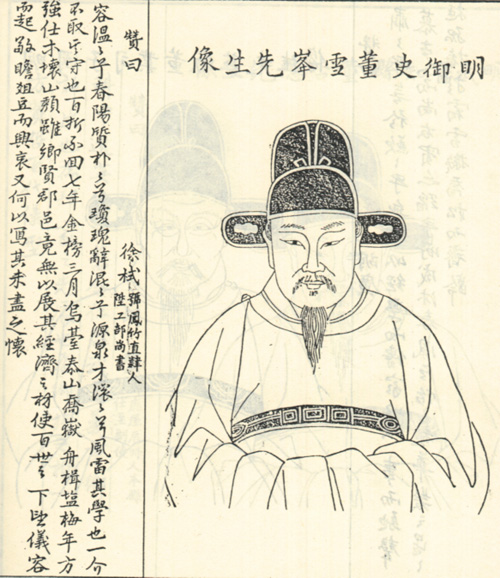 明御史董雪峯先生像
贊曰
徐栻
號鳳竹直隸人
陞工部尚書
容溫〻乎春陽質朴〻兮瓊瑰辭混〻乎源泉才滾〻兮風雷其學也一介
不取其守也百折不回七年金榜三月烏臺泰山喬嶽舟楫塩梅年方
強仕木壞山頹雖鄉賢郡邑竟無以展其經濟之材使百世之下望儀容
而起敬瞻俎豆而興哀又何以寫其未盡之懷